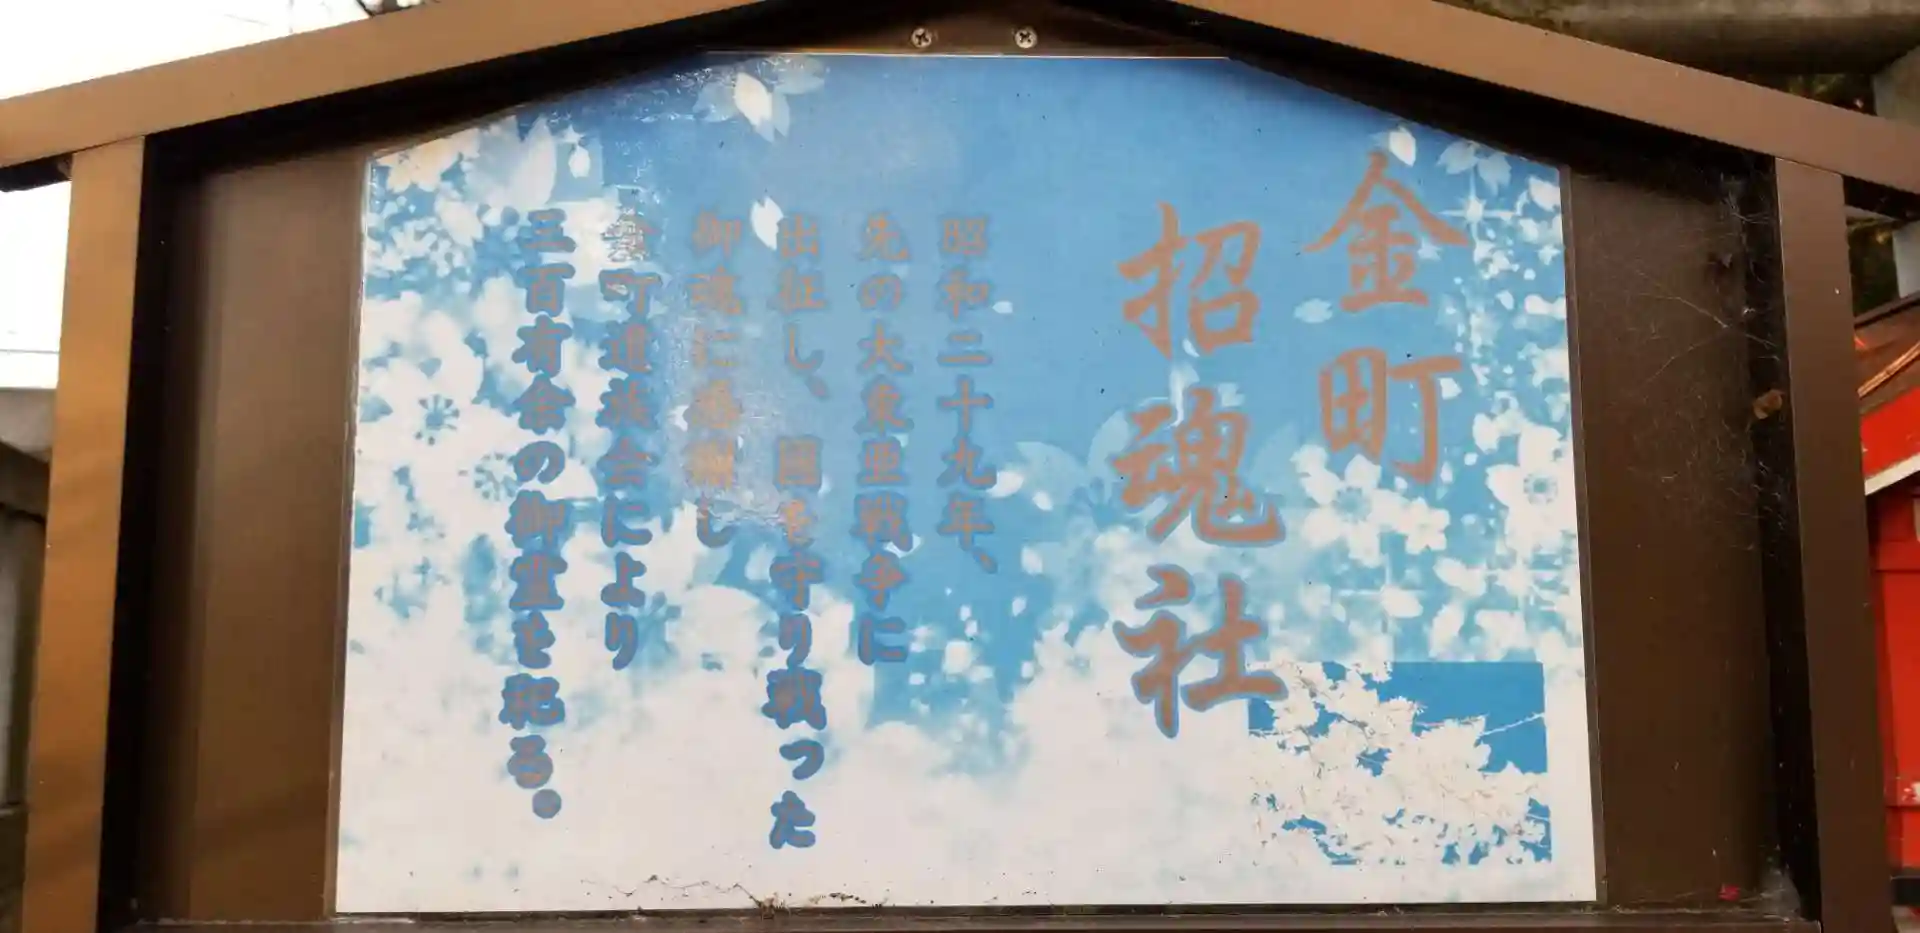 金町
招魂社
昭和二十九年、
先の大東亜戦争に
出征し、國を守り戦った
御魂に感謝し
金町遺族会により
三百有余の御霊を祀る。